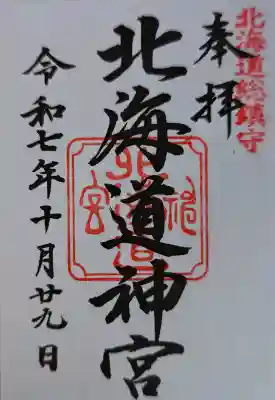 北海道総鎮守
奉拝
北海道神宮
令和七年十月廿九日